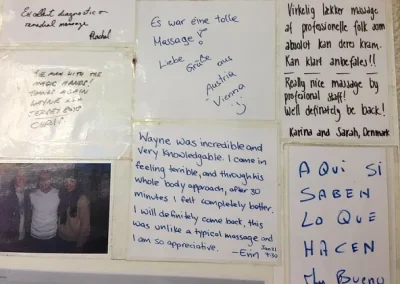 Excellent diagnostic &
remedial massage.
Rachel
"THE MAN WITH THE
MAGIC HANDS!
THANKS AGAIN
WAYNE XXX
JERSEY BOYS
Es war eine tolle
Massage!
Liebe Grüße aus
Austria
Vienna
Virkelig lækker massage
af professionelle folk som
absolut kan deres kram.
Kan klart anbefales!!
Really nice massage by
profesional staff!
Well definately be back!
Karina and Sarah, Denmark
Wayne was incredible and
very knowledgable. I came in
feeling terrible, and through his
whole body approach, after 30
minutes I felt completely better.
I will definitely come back, this
was unlike a typical massage and
I am so appreciative. -Erin
A QUI SI
SABEN
LO QUE
HACEN
Muy Bueno